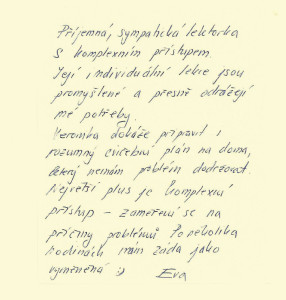 Příjemná, sympatická lektorka
s komplexním přístupem.
Její individuální lekce jsou
promyšlené a přesně odrážejí
mé potřeby.
Veronika dokáže připravit i
rozumný cvičební plán na doma,
který nemám problém dodržovat.
Největší plus je komplexní
přístup – zaměření se na
příčiny problémů. Po několika
hodinách mám záda jako
vyměněná :)
Eva